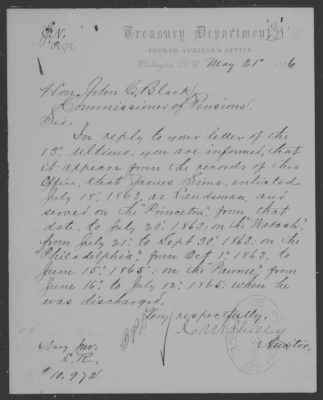 Treasury Department,
FOURTH AUDITOR'S OFFICE,
Washington, D.C. May 21" 6
Hon. John C. Black,
Commissioner of Pensions,
Sir,
In reply to your letter of the
13" Ultimo, you are informed, that
it appears from the records of this
Office, that James Sims, enlisted
July 18", 1863, as Landsman, and
served on the "Princeton" from that
date to July 20", 1863, on the "Wabash"
from July 21" to Sept 30", 1863, on the
"Philadelphia", from Oct 1", 1863, to
June 15", 1865, on the "Pawnee", from
June 16" to July 12", 1865, when he
was discharged.
Very respectfully,
Auditor.
Navy Inv.
No. 10,972